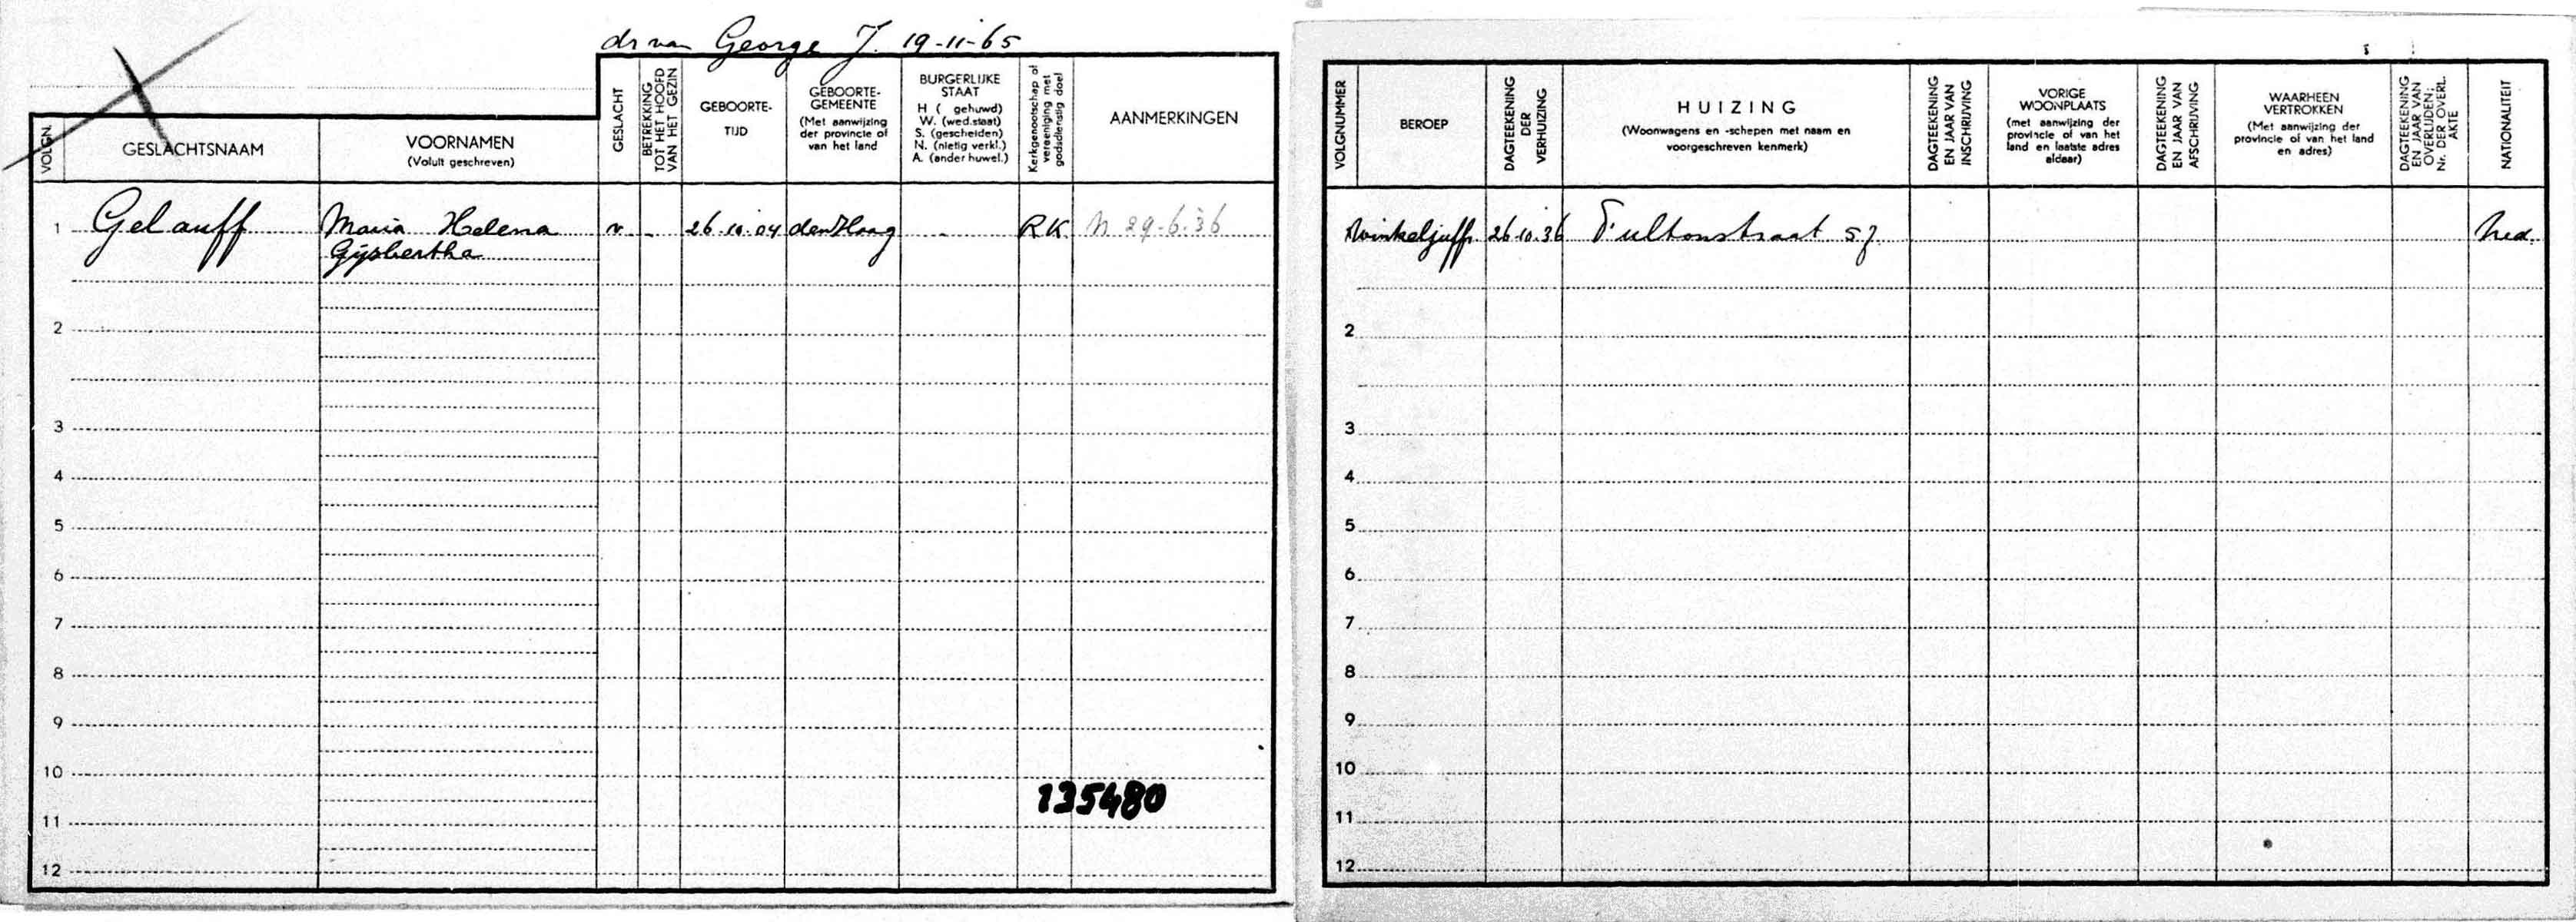 dr van George J. 19-11-65
VOLGN.
GESLACHTSNAAM
VOORNAMEN
(Voluit geschreven)
GESLACHT
BETREKKING
TOT HET HOOFD
VAN HET GEZIN
GEBOORTE-
TIJD
GEBOORTE-
GEMEENTE
(Met aanwijzing
der provincie of
van het land
BURGERLIJKE
STAAT
H ( gehuwd)
W. (wed.staat)
S. (gescheiden)
N. (nietig verkl.)
A. (ander huwel.)
Kerkgenootschap of
vereeniging met
godsdienstig doel
AANMERKINGEN
1 Gelauff Maria Helena v. - 26.10.04 den Haag - RK N 29-6-36
Gijsbertha
2
3
4
5
6
7
8
9
10
135480
11
12
VOLGNUMMER
BEROEP
DAGTEEKENING
DER
VERHUIZING
HUIZING
(Woonwagens en -schepen met naam en
voorgeschreven kenmerk)
DAGTEEKENING
EN JAAR VAN
INSCHRIJVING
VORIGE
WOONPLAATS
(met aanwijzing der
provincie of van het
land en laatste adres
aldaar)
DAGTEEKENING
EN JAAR VAN
AFSCHRIJVING
WAARHEEN
VERTROKKEN
(Met aanwijzing der
provincie of van het land
en adres)
DAGTEEKENING
EN JAAR VAN
OVERLIJDEN;
Nr. DER OVERL.
AKTE
NATIONALITEIT
Winkeljuffr. 26.10.36 Fultonstraat 57 Ned.
2
3
4
5
6
7
8
9
10
11
12